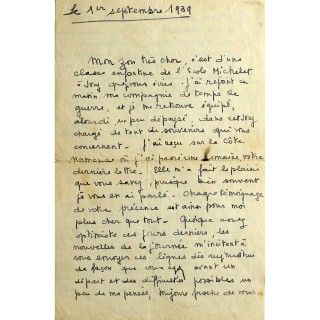 le 1er septembre 1939
Mon            très cher, c'est d'une
classe enfantine de l'Ecole Michelet
à          que vous écris. J'ai rejoint ce
matin ma compagnie de temps de
guerre, et je me retrouve équipé,
alourdi, un peu dépaysé, dans cet
chargé de tant de souvenirs qui vous
concernent - J'ai reçu sur la Côte
Normande où j'ai passé une semaine, votre
dernière lettre. Elle m'a fait le plaisir
que vous savez, puisque bien souvent
je vous en ai parlé. Chaque témoignage
de votre présence est ainsi pour moi
plus cher que tout - Quoique assez
optimiste ces jours derniers, les
nouvelles de la journée m'incitent à
vous envoyer ces lignes dès aujourd'hui
de façon que vous        avant un
départ et des difficultés possibles un
peu de ma pensée, toujours proche de vous.